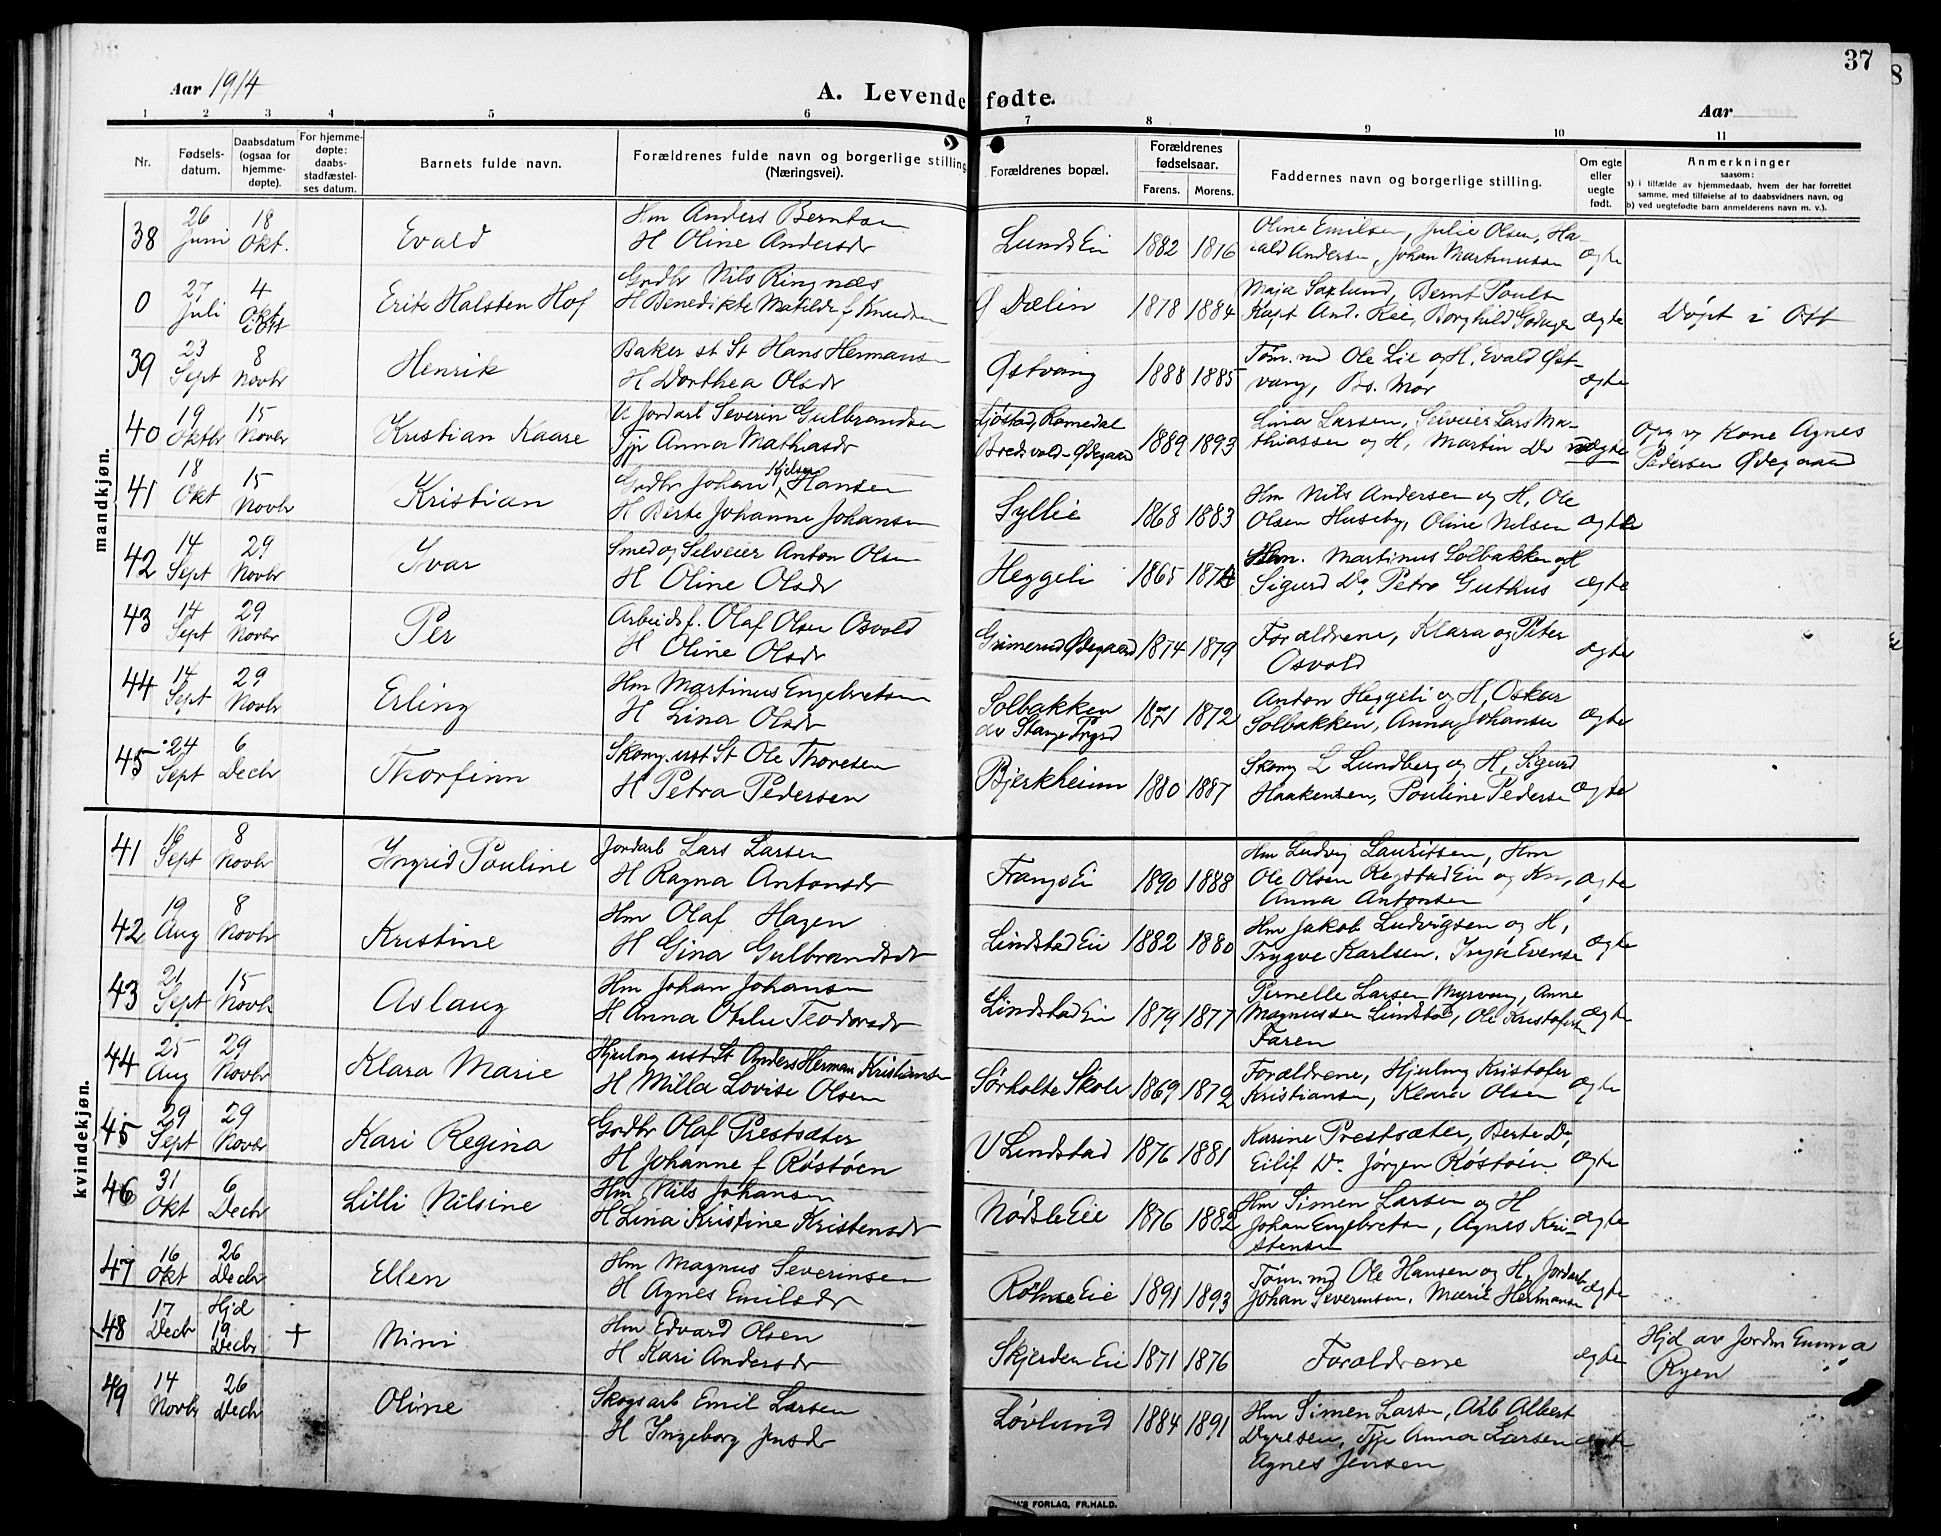 37
8
Aar 1914
A. Levende fødte.
Aar
1 2 3 4 5 6 7 8 9 10 11
Nr.
Fødsels-
datum.
Daabsdatum
(ogsaa for
hjemme-
døpte).
For hjemme-
døpte:
daabs-
stadfæstel-
ses datum.
Barnets fulde navn.
Forældrenes fulde navn og borgerlige stilling
(Næringsvei).
Forældrenes bopæl.
Forældrenes
fødselsaar.
Farens. Morens.
Faddernes navn og borgerlige stilling.
Om egte
eller
uegte
født.
Anmerkninger
saasom:
a) i tilfælde av hjemmedaab, hvem der har forrettet
samme, med tilføielse af to daabsvidners navn, og
b) ved uegtefødte barn anmelderens navn m. v.).
mandkjøn.
38 26 Juni 18 Okt. Evald
Hm Anders Berntsen
H Oline Andersdr
Lunds Ei 1882 1876
Oline Emilsen, Julie Olsen, Ha-
rald Andersen, Johan Martinusen
ægte
0 27 Juli 4 Okt Erik Halsten Hof
Grdbr Nils Ringnæs
H Benedikte Matilde f Knudsen
Ø Dælin 1878 1884
Maja Saxlund, Bernt Pouls
Kapt And. Ree, Borghild
ægte
Døpt i
39 23 Sept 8 Novbr Henrik
Baker st St Hans Hermansen
H Dorthea Olsdr
Østvang 1888 1885
Tøm.md Ole Lie og H, Evald Øst-
vang, Bs. Mor
ægte
40 19 Oktbr 15 Novbr Kristian Kaare
U Jordarb Severin Gulbrandsen
Tjp Anna Mathiasdr
Romedal
Bredsvold-Ødegaard
1889 1893
Lina Larsen, Selveier Lars Ma-
thiassen og H, Martin Do
uægte
Opg v Kone Agnes
Pedersen Ødegaard
41 18 Okt 15 Novbr Kristian
Grdbr Johan Kjelsen Hansen
H Berte Johanne Johansen
Syllie 1868 1883
Hm Nils Andersen og H, Ole
Olsen Huseby, Oline Nilsen
ægte
42 14 Sept 29 Novbr Ivar
Smed og Selveier Anton Olsen
H Oline Olsdr
Heggeli 1865 1874
Hm. Martinus Solbakken og H
Sigurd Do, Petra Guthus
ægte
43 14 Sept 29 Novbr Per
Arbeidsf. Olaf Olsen Osvold
H Oline Olsdr
Grimerud Ødegaard 1874 1879
Forældrene, Klara og Peter
Osvold
ægte
44 14 Sept 29 Novbr Erling
Hm Martinus Engebretsen
H Lina Olsdr
Solbakken
av Stange Prgd
1871 1872
Anton Heggeli og H, Oskar
Solbakken, Anna Johansen
ægte
45 24 Sept 6 Decbr Thorfinn
Skom. ust St Ole Thoresen
H Petra Pedersen
Bjerkheim 1880 1887
Skom L Lundberg og H, Sigurd
Haakensen, Pouline Pedersen
ægte
kvindekjøn.
41 16 Sept 8 Novbr Ingrid Pouline
Jordarb Lars Larsen
H Ragna Antonsdr
Frangs Ei 1890 1888
Hm Ludvig Lauritsen, Hm
Ole Olsen Regstad Ei og Kn,
Anna Antonsen
ægte
42 19 Aug 8 Novbr Kristine
Hm Olaf Hagen
H Gina Gulbrandsdr
Lindstad Eie 1882 1880
Hm Jakob Ludvigsen og H,
Trygve Karlsen, Inga Evensen
ægte
43 21 Sept 15 Novbr Aslaug
Hm Johan Johansen
H Anna Otilie Teodorsdr
Lindstad Ei 1879 1877
Pernelle Larsen Myrvang, Anne
Magnussen Lindstad, Ole Kristofersen
Faren
ægte
44 25 Aug 29 Novbr Klara Marie
Hjulm ust St Anders Herman Kristiansen
H Milla Lovise Olsen
Sørholte Skole 1869 1872
Forældrene, Hjulm Kristofer
Kristiansen, Klara Olsen
ægte
45 29 Sept 29 Novbr Kari Regina
Grdbr Olaf Prestsæter
H Johanne f Røstøen
V Lindstad 1876 1881
Karine Prestsæter, Berte Do,
Eilif Do. Jørgen Røstøen
ægte
46 31 Okt 6 Decbr Lilli Nilsine
Hm Nils Johansen
H Lina Kristine Kristensdr
Nødsle Eie 1876 1882
Hm Simen Larsen og H
Johan Engebretsen, Agnes Kri-
stensen
ægte
47 16 Okt 26 Decbr Ellen
Hm Magnus Severinsen
H Agnes Emilsdr
Røhne Eie 1891 1893
Tøm.md Ole Hansen og H, Jordarb
Johan Severinsen, Marie Hermansen
ægte
48 17 Decbr Hjd 19 Decbr + Nini
Hm Edvard Olsen
H Kari Andersdr
Skjerden Ei 1871 1876
Forældrene
ægte
Hjd av Jordm Emma
Ryen
49 14 Novbr 26 Decbr Oline
Skogsarb Emil Larsen
H Ingeborg Jensdr
Løvlund 1884 1891
Hm Simen Larsen, Arb Albert
Dyresen, Tjp Anna Larsen
Agnes Jensen
ægte
'S FORLAG, FR.HALD.